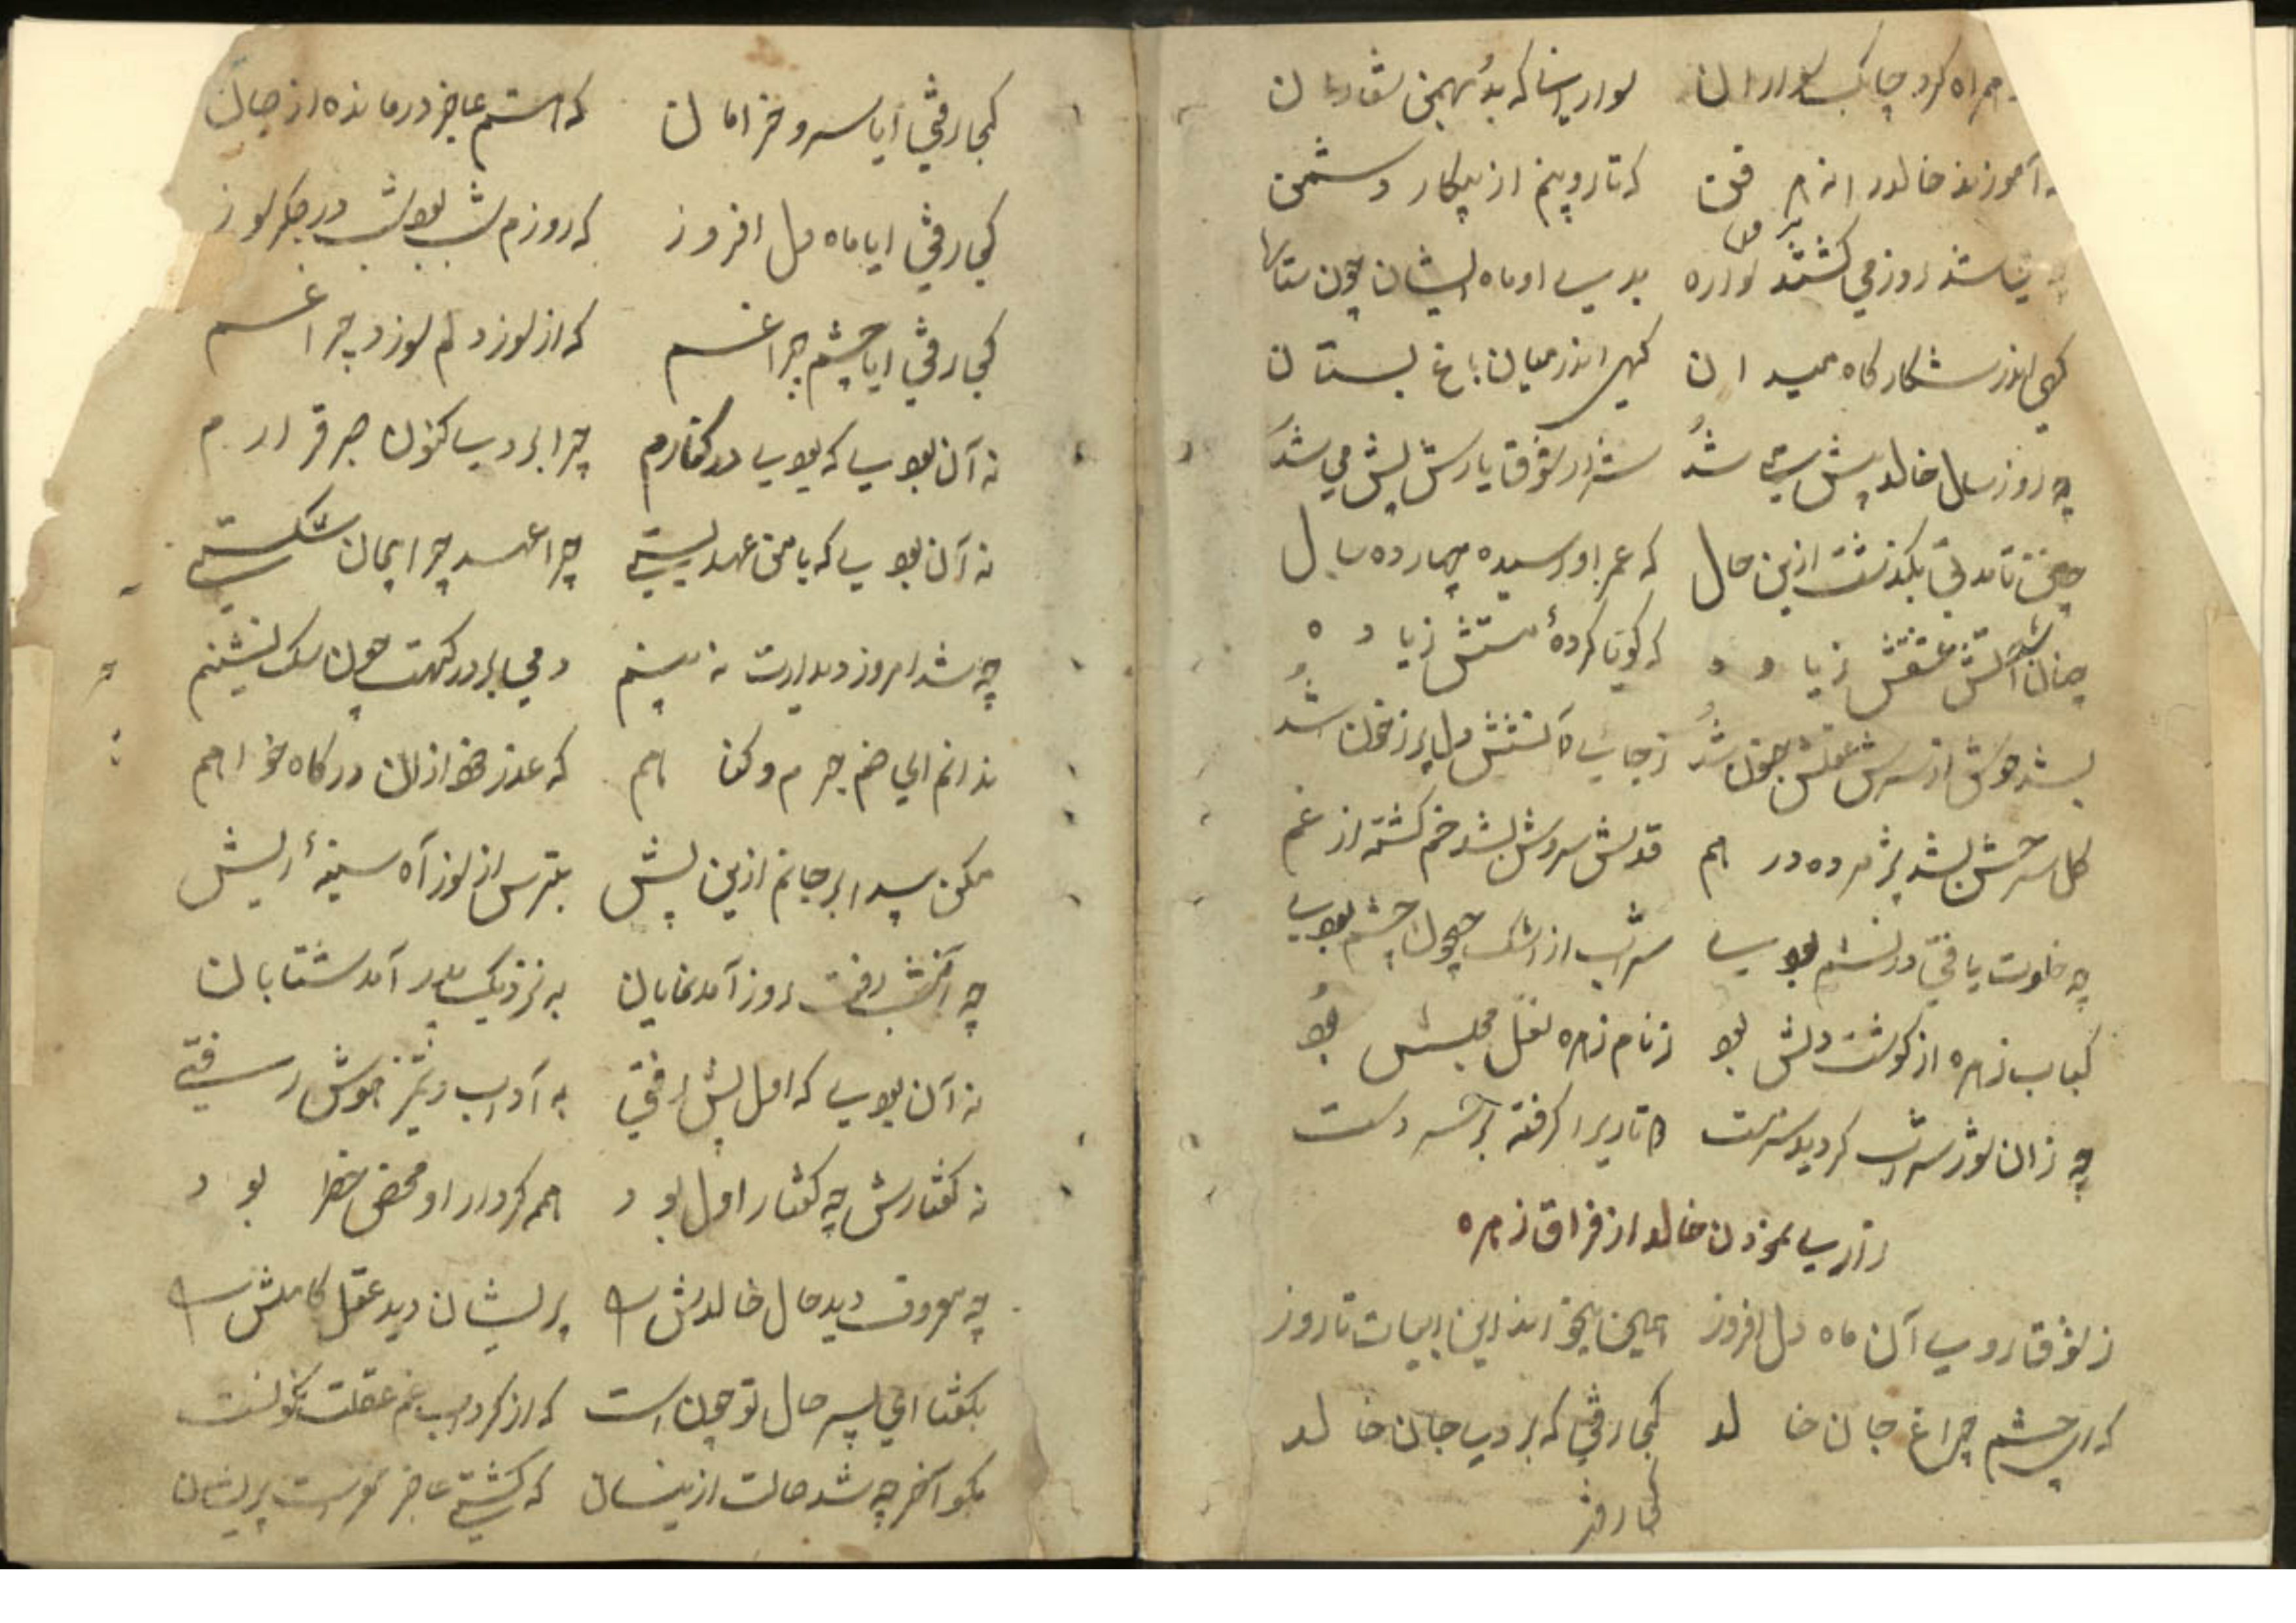 همراه کرد چابک سواران سواریرا که بد بهمن شعاران
آموزند خالدرا ز هر فن که تا رو پیچم از پیکار دشمن
شد روز می کشتند سواره بدی او ماه ایشان چون ستاره
کهی اندر شکار کاه میدان کهی اندر میان باغ بستان
چه روز سال خالد پیش شد شرار شوق یارش پیش می شد
چنین تا مدتی بکذشت ازین حال که عمر او رسیده چهارده سال
چنان شد آتش عشقش زیاده که کویا کردهٔ مستش زیاده
بشد هوش از سرش عقلش جنون شد ز جای آتشش دل پر ز خون شد
کل سرخش بشد پژمرده درهم قدش سروش بشد خم کشته از غم
چه خلوت یافتی در شب بودی شراب از اشک چون چشم بودی
کباب زهره از کوشت دلش بود ز نام زهره نقل مجلسش بود
چه زان شور شراب کردید سرمست دو تاریرا کرفته بر سر دست
زاری نمودن خالد از فراق زهره
ز شوق روی آن ماه دل افروز همین میخواند این ابیات تا روز
که ای چشم چراغ جان خالد کجا رفتی که بردی جان خالد
کجا رفتی
کجا رفتی ایا سرو خرامان که هستم عاجز درمانده از جان
کجا رفتی ایا ماه دل افروز که روزم شب بود شب در جکر سوز
کجا رفتی ایا چشم چراغم که از سوز دلم سوزد چراغم
نه آن بودی که بودی در کنارم چرا بردی کنون صبر قرارم
نه آن بودی که با من عهد بستی چرا عهد چرا پیمان شکستی
چه شد امروز دیدارت نه بینم دمی بر درکهت چون سک نشینم
ندانم ای صنم جرم و کناهم که عذر خود ازان درکاه خواهم
مکن بیداد بر جانم ازین پیش بترس از سوز آه سینهٔ ریش
چه آن شب رفت روز آمد نمایان به نزدیک پدر آمد شتابان
نه آن بودی که اول پیش رفتی به آداب و تمیز هوش رفتی
نه کفتارش چه کفتار اول بود همه کردار او محض خطا بود
چه معروف دید حال خالدش را پریشان دید عقل کاملش را
بکفتا ای پسر حال تو چون است که از کرداب غم عقلت نکونست
بکو آخر چه شد حالت ازینسان که کشتی عاجز پریشان